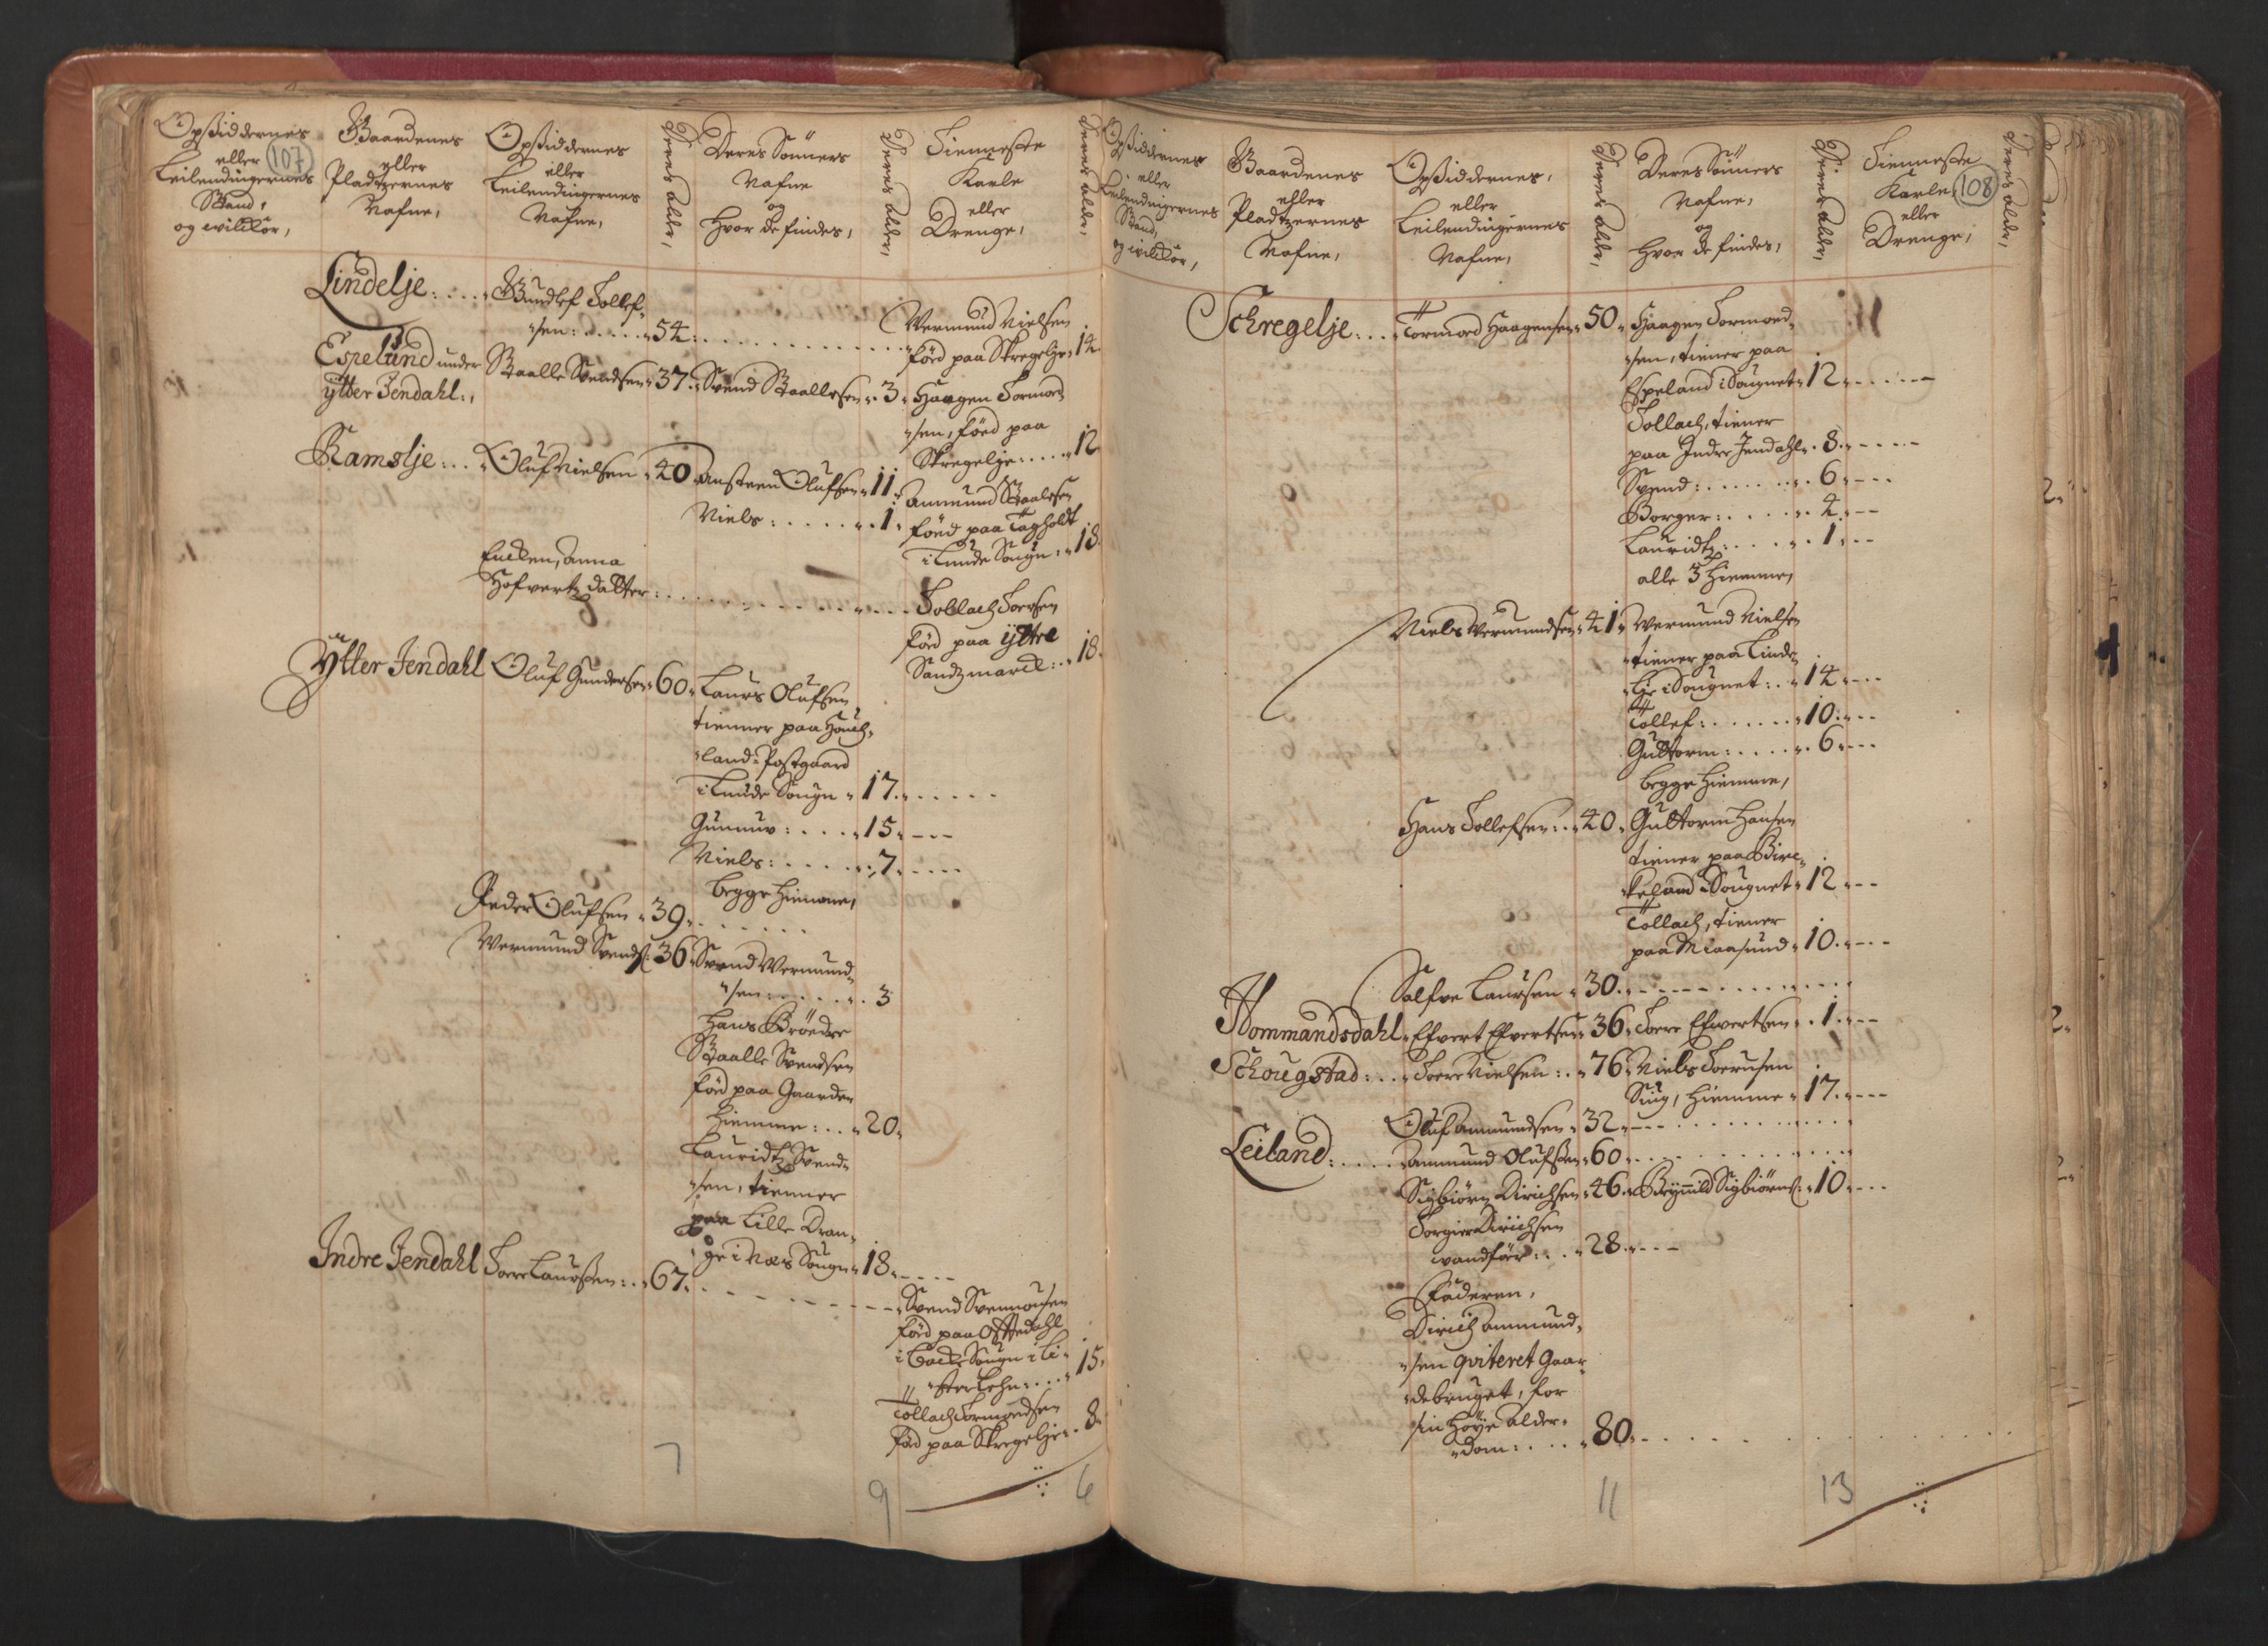 107
Opsiddernes
eller
Leilendingernes
Stand,
og wilckor,
Gaardenes
eller
Pladtzernes
Nafne,
Opsiddernes
eller
Leilendingernes
Nafne,
Deres alder,
Deres Sönners
Nafne
og
hvor de findes,
Deres alder,
Tienneste
Karle
eller
Drenge,
Deres alder,
Lindelje: Gundlef Tollef-
sen: 54. Wermund Nielsen
föed paa Skregelje 14.
Espelund under Staalle Svendsen 37. Svend Staallesen 3. Haagen Tormod-
ytter Jendahl.,
sen, föed paa
Skregelje: 12
Ramslje: Oluf Nielsen 40 Ansteen Olufsen 11. Ammund Staalesen
Niels: 1. föed paa Tagholdt
i Lunde Sougn: 18.
Encken, Anna
Hofvertz datter: Tollach Torsen
föed paa ÿttre
Sandzmarck: 18.
Ÿtter Jendahl Oluf Gundersen 60. Laurs Olufsen
tienner paa Houch-
land Postgaard
i Lunde Sougn 17.
Gunnuv: 15.
Niels: 7.
begge hiemme,
Peder Olufsen 39.
Wermund Svends: 36. Svend Wermund-
sen: 3
hans Brödre
Staalle Svendsen
föed paa Gaarden
hiemme: 20.
Lauridtz Svend-
sen, tienner
paa Lille Dran-
ge i Næs Sougn 18.
Indre Jendahl Torre Laursen: 67.
Svend Svennousen
föed paa Oftedahl
i Backe Sougn i Li-
ster Lehn: 15.
Tollach Tormondsen
föed paa Skregelje 8.
7
9
6
108
Opsiddernes
eller
Leilendingernes
Stand,
og wilckor,
Gaardenes
eller
Pladtzernes
Nafne,
Opsiddernes,
eller
Leilendingernes
Nafne,
Deres alder,
Deres Sönners
Nafne,
og
hvor de findes,
Deres alder,
Tienneste
Karle,
eller
Drenge,
Deres alder,
Schregelje: Tormord Haagensen 50. Haagen Tormord-
sen, tiener paa
Espeland i Sougnet 12.
Tollach, tiener
paa Indre Jendahl 8.
Svend: 6.
Borger: 4.
Lauridtz: 1.
alle 3 hiemme,
Niels Wermundsen 41. Wermund Nielsen
tiener paa Linde-
lje i Sougnet: 14.
Tollef: 10.
Guttorm: 6.
begge hiemme,
Hans Tollefsen: 40. Guttorm Hansen
tiener paa Birc-
keland i Sougnet 12.
Tollach, tiener
paa Miaasund 10.
Salfve Laursen 30.
Hommandsdahl Efvert Efvertsen 36. Torre Efwertsen 1.
Schougstad: Torre Nielsen: 76. Niels Torrusen
Siug, hiemme 17.
Oluf Ammundsen 32.
Leiland: Ammund Olufsen 60.
Sigbiörn Dirichsen 46. Brynnild Sigbiörns: 10.
Torgier Dirichsen
wandför: 28.
Faderen,
Dirich Ammund-
sen qviteret Gaar-
debruget, for
sin höye alder-
dom: 80.
11
13